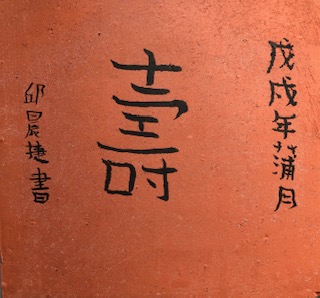 戊戌年蒲月
壽
邱晨捷書